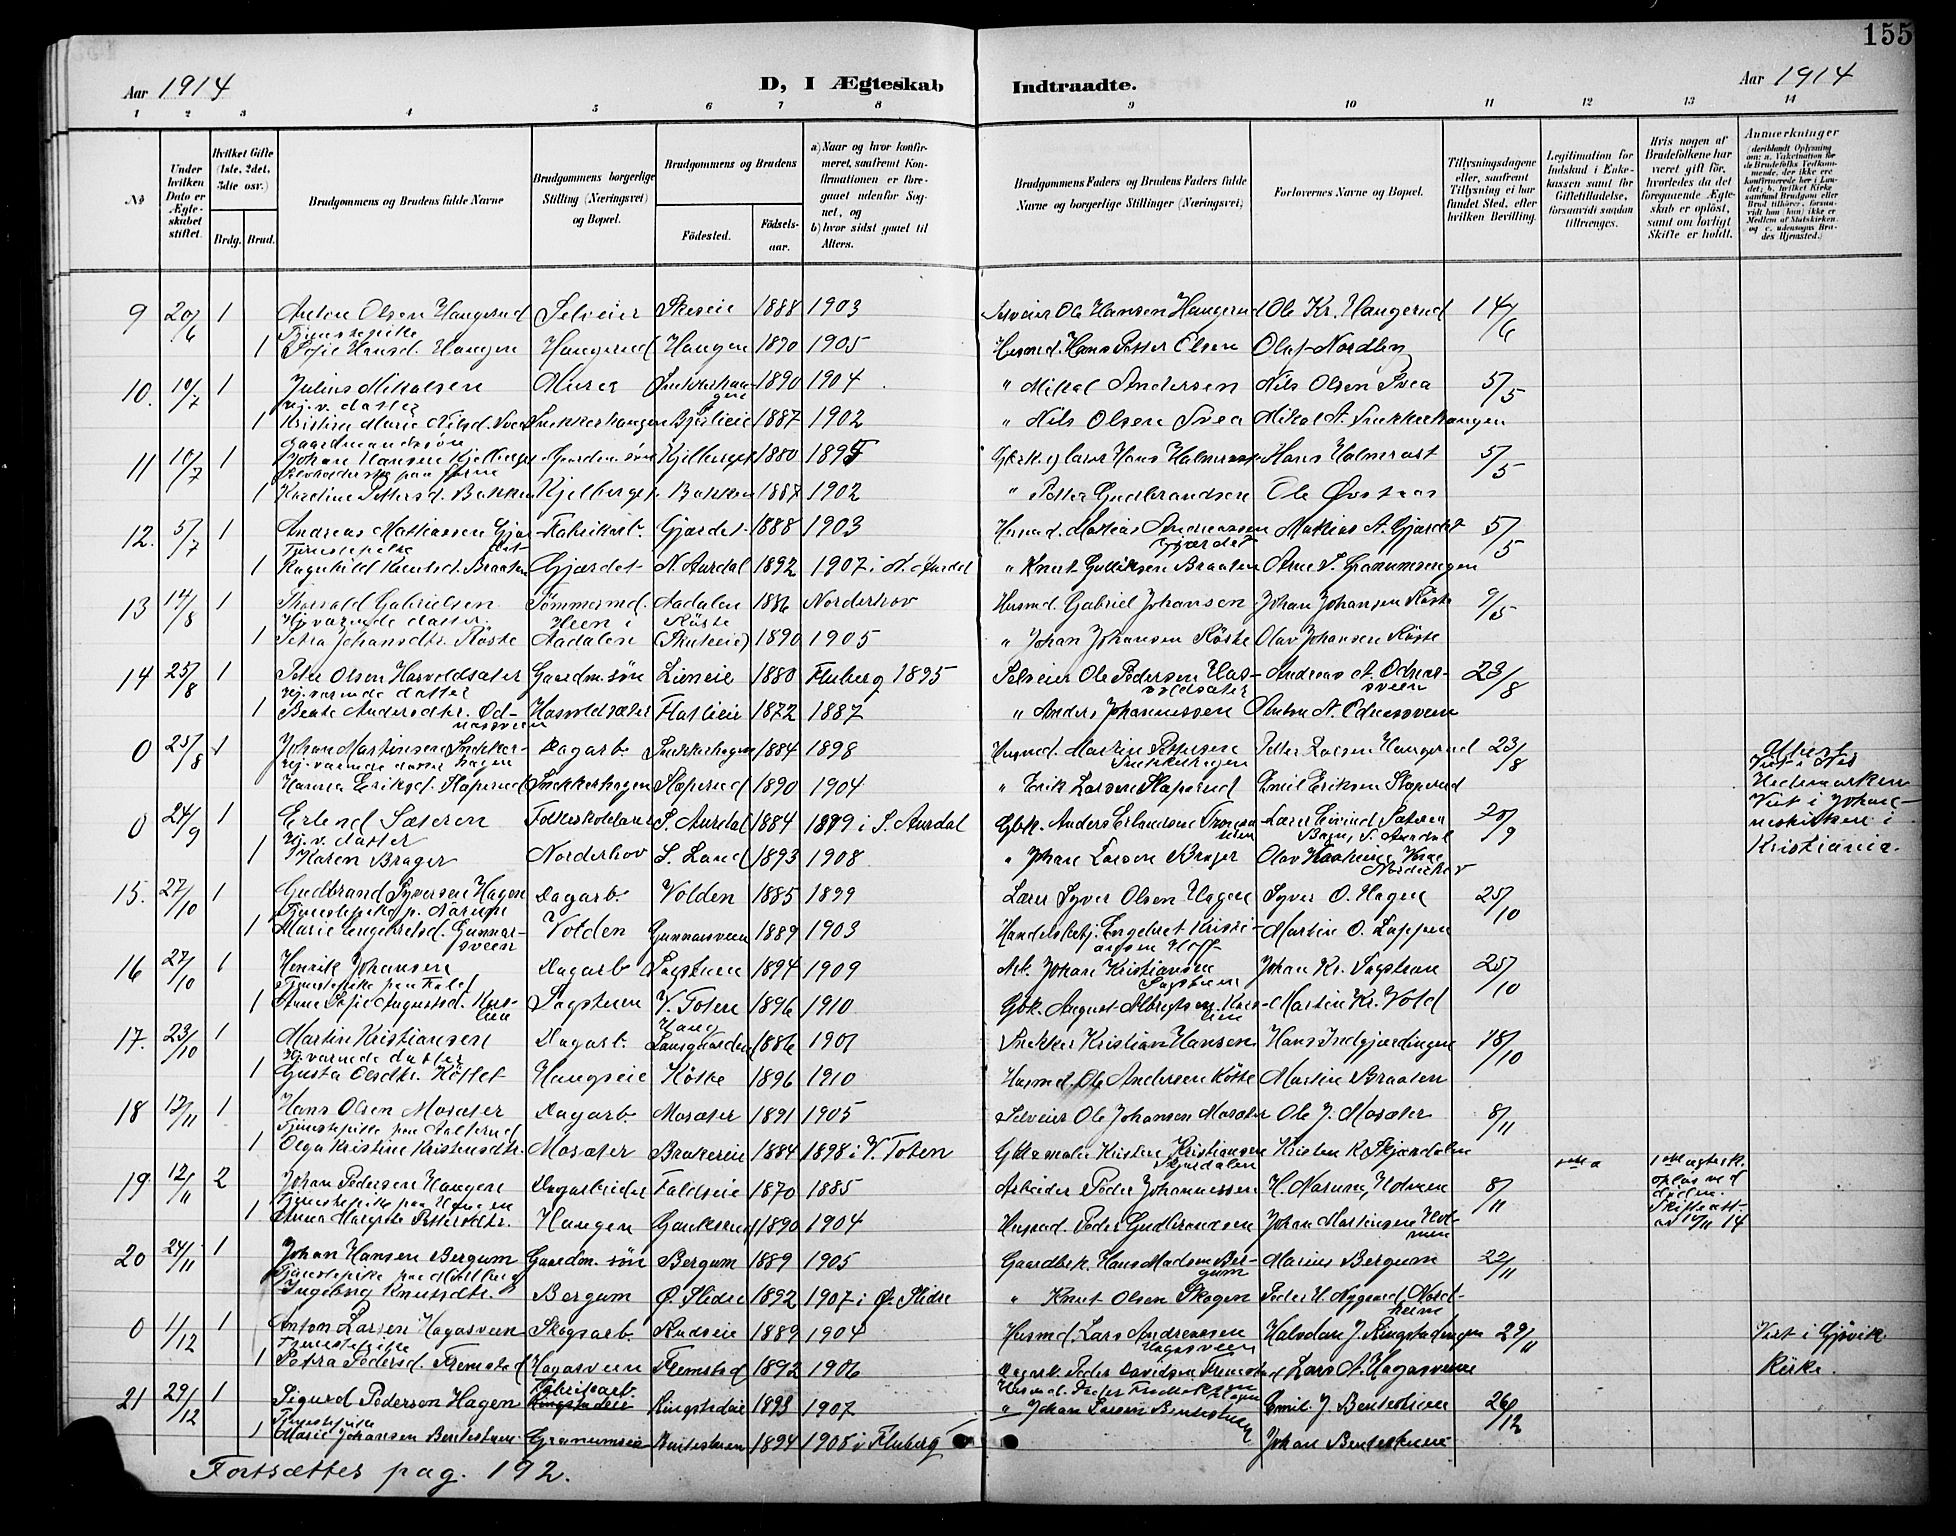 155
Aar 1914
D, I Ægteskab
Indtraadte.
Aar 1914
1 2 3 4 5 6 7 8 9 10 11 12 13 14
No
Under hvilken Dato er Ægteskabet stiftet.
Hvilket Gifte (1ste, 2det, 3die osv.)
Brdg. Brud.
Brudgommens og Brudens fulde Navne
Brudgommens borgerlige Stilling (Næringsvei) og Bopæl.
Brudgommens og Brudens
Fødested.
Fødselsaar.
a) Naar og hvor konfirmeret, saafremt Konfirmationen er foregaaet udenfor Sognet, og b) hvor sidst gaaet til Alters.
Brudgommens Faders og Brudens Faders fulde Navne og borgerlige Stillinger (Næringsvei)
Forlovernes Navne og Bopæl.
Tillysningsdagene eller, saafremt Tillysning ei har fundet Sted, efter hvilken Bevilling.
Legitimation for Indskud i Enkekassen samt for Giftetilladelse, forsaavidt saadan tiltrænges.
Hvis nogen af Brudefolkene har været gift før, hvorledes da det foregaaende Ægteskab er opløst, samt om lovligt Skifte er holdt.
Anmerkninger
9 20/6 1 Anton Olsen Haugerud Selveier 1888 1903 Selveier Ole Hansen Haugerud Ole Kr. Haugerud 14/6
Tjenestepike
1 Sofie Hansd. Haugen Haugerud Haugen 1890 1905 Husmd. Hans Petter Olsen Olaf Nordlien
10. 10/7 1 Julius Mikalsen Murer Snekkerhaugen 1890 1904 " Mikal Andersen Nils Olsen Svea 5/5
Hj.v. datter
1 Kristine Marie Nilsd. Svea Snekkerhaugen 1887 1902 " Nils Olsen Svea Mikal A. Snekkerhaugen
Gaardmandssøn
11 10/7 1 Johan Hansen Kjelberget Gaardm. søn Kjelberget 1880 1895 Hans Halmrast 5/5
1 Karoline Pettersd. Bakken Kjelberget Bakken 1887 1902 " Petter Gudbrandsen Ole
12. 5/7 1 Andreas Mathiassen Gjærdet Fabrikarb. Gjærdet 1888 1903 Husmd. Mathias Andreassen Gjærdet Mathias A. Gjærdet 5/5
Tjenestepike
1 Ragnhild Knutsd. Braaten Gjærdet N. Aurdal 1892 1907 i N. Aurdal " Knut Gulliksen Braaten Arne S. Granumsengen
13 14/8 1 Thorvald Gabrielsen Tømmermd. Aadalen 1886 Norderhov Husmd. Gabriel Johansen Johan Johansen Køste 9/5
Hj.værende datter. Heen i Køste
1 Petra Johansdtr. Køste Aadalen 1890 1905 " Johan Johansen Køste Olav Johansen Køste
14 25/8 1 Peter Olsen Hasvoldsæter Gaardm. søn Lieneie 1880 Fluberg 1895 Selveier Ole Pedersen Hasvoldsæter Andreas A. Odnessveen 23/8
Hj. værende datter
1 Beate Andersdtr. Odnessveen Hasvoldsæter Flatlieie 1872 1887 " Anders Johannessen Anton A. Odnessveen
0 25/8 1 Johan Martinsen Snekkerhagen Dagarb. Snekkerhagen 1884 1898 Husmd. Martin Pettersen Snekkerhagen Petter Larsen Haugerud 23/8
Hj. værende datter
Hanna Eriksd. Slaperud Snekkerhagen Slaperud 1890 1904 " Erik Larsen Slaperud Emil Eriksen Slaperud Viet i Nes Hedemarken
0 24/9 1 Erlend Sæteren Folkeskolelærer S. Aurdal 1884 1899 i S. Aurdal Gbk. Anders Erlandsen Lærer Eivind Sæteren Bagn, S. Aurdal 20/9 Viet i Johaneskirken i Kristiania.
Hj. v. datter
1 Karen Brager Norderhov S. Land 1893 1908 " Johan Larsen Brager Olav Norderhov
15. 27/10 1 Gudbrand Syversen Hagen Dagarb. Volden 1885 1899 Lærer Syver Olsen Hagen Syver O. Hagen 25/10
Tjenestepike p. Narum
1 Marie Engebretsd. Gunnarsveen Volden Gunnarsveen 1889 1903 Handelsbetj. Engebret Kristiansen Hoff Martin O. Lappen
16 27/10 1 Henrik Johansen Dagarb Sagstuen 1894 1909 Arb. Johan Kristiansen Sagstuen Johan Kr. Sagstuen 25/10
1 Anne Sofie Augustsd. Sagstuen V. Toten 1896 1910 Gbk. August Albregtsen Martin Kr. Vold
17. 23/10 1 Martin Kristiansen Dagarb. 1886 1901 Snekker Kristian Hansen Hans Indgjærdingen 18/10
Hj. værende datter
1 Gusta Olsdtr. Køstet Haugseie Køste 1896 1910 Husmd. Ole Andersen Køste Martin Braaten
18 12/11 1 Hans Olsen Mosæter Dagarb Mosæter 1891 1905 Selveier Ole Johansen Mosæter Ole J. Mosæter 8/11
1 Olga Kristine Kristensdtr. Mosæter Brakereie 1884 1898 i V. Toten Kristen Kristiansen Skjærdalen Kristen K. Skjærdalen
19. 12/11 2 Johan Pedersen Haugen Dagarbeider Faldseie 1870 1885 Arbeider Peder Johannessen H. Narum, Holmen 8/11 1ste ægtesk. opløs ved døden. Skifteatt. av 10/11 14
Tjenestepike paa Haugen
1 Anna Margrete Pettersdtr. Haugen 1890 1904 Husmd. Peder Gudbrandsen Johan Martinsen Holmen
20 24/11 1 Johan Hansen Bergum Gaardm. søn Bergum 1889 1905 Gaardbek. Hans Madsen Bergum Marius Bergum 22/11
1 Ingeborg Knutsdtr. Bergum Ø. Slidre 1892 1907 i Ø. Slidre " Knut Olsen Skogen Peder H. Nygaard Nordheim
0 1/12 1 Anton Larsen Hagasveen Skogsarb. Rudseie 1889 1904 Husmd. Lars Andreassen Hagasveen Halvdan J. Ringstadengen 29/11 Viet i Gjøvik Kirke.
Tjenestepike
1 Petra Pedersd. Fremstad Hagasveen Fremstad 1892 1906 Dagarb. Peder Davidsen Fremstad Lars A. Hagasveen
21 29/12 1 Sigurd Pederson Hagen Fabrikarb. Ringstadeie 1893 1907 Husmd. Peder Fredriksen Hagen Emil J. Bentestuen 26/12
Tjenestepike
1 Marie Johansen Bentestuen Granumseie Bentestuen 1894 1908 i Fluberg " Johan Larsen Bentestuen Johan Bentestuen
Fortsættes pag. 192.